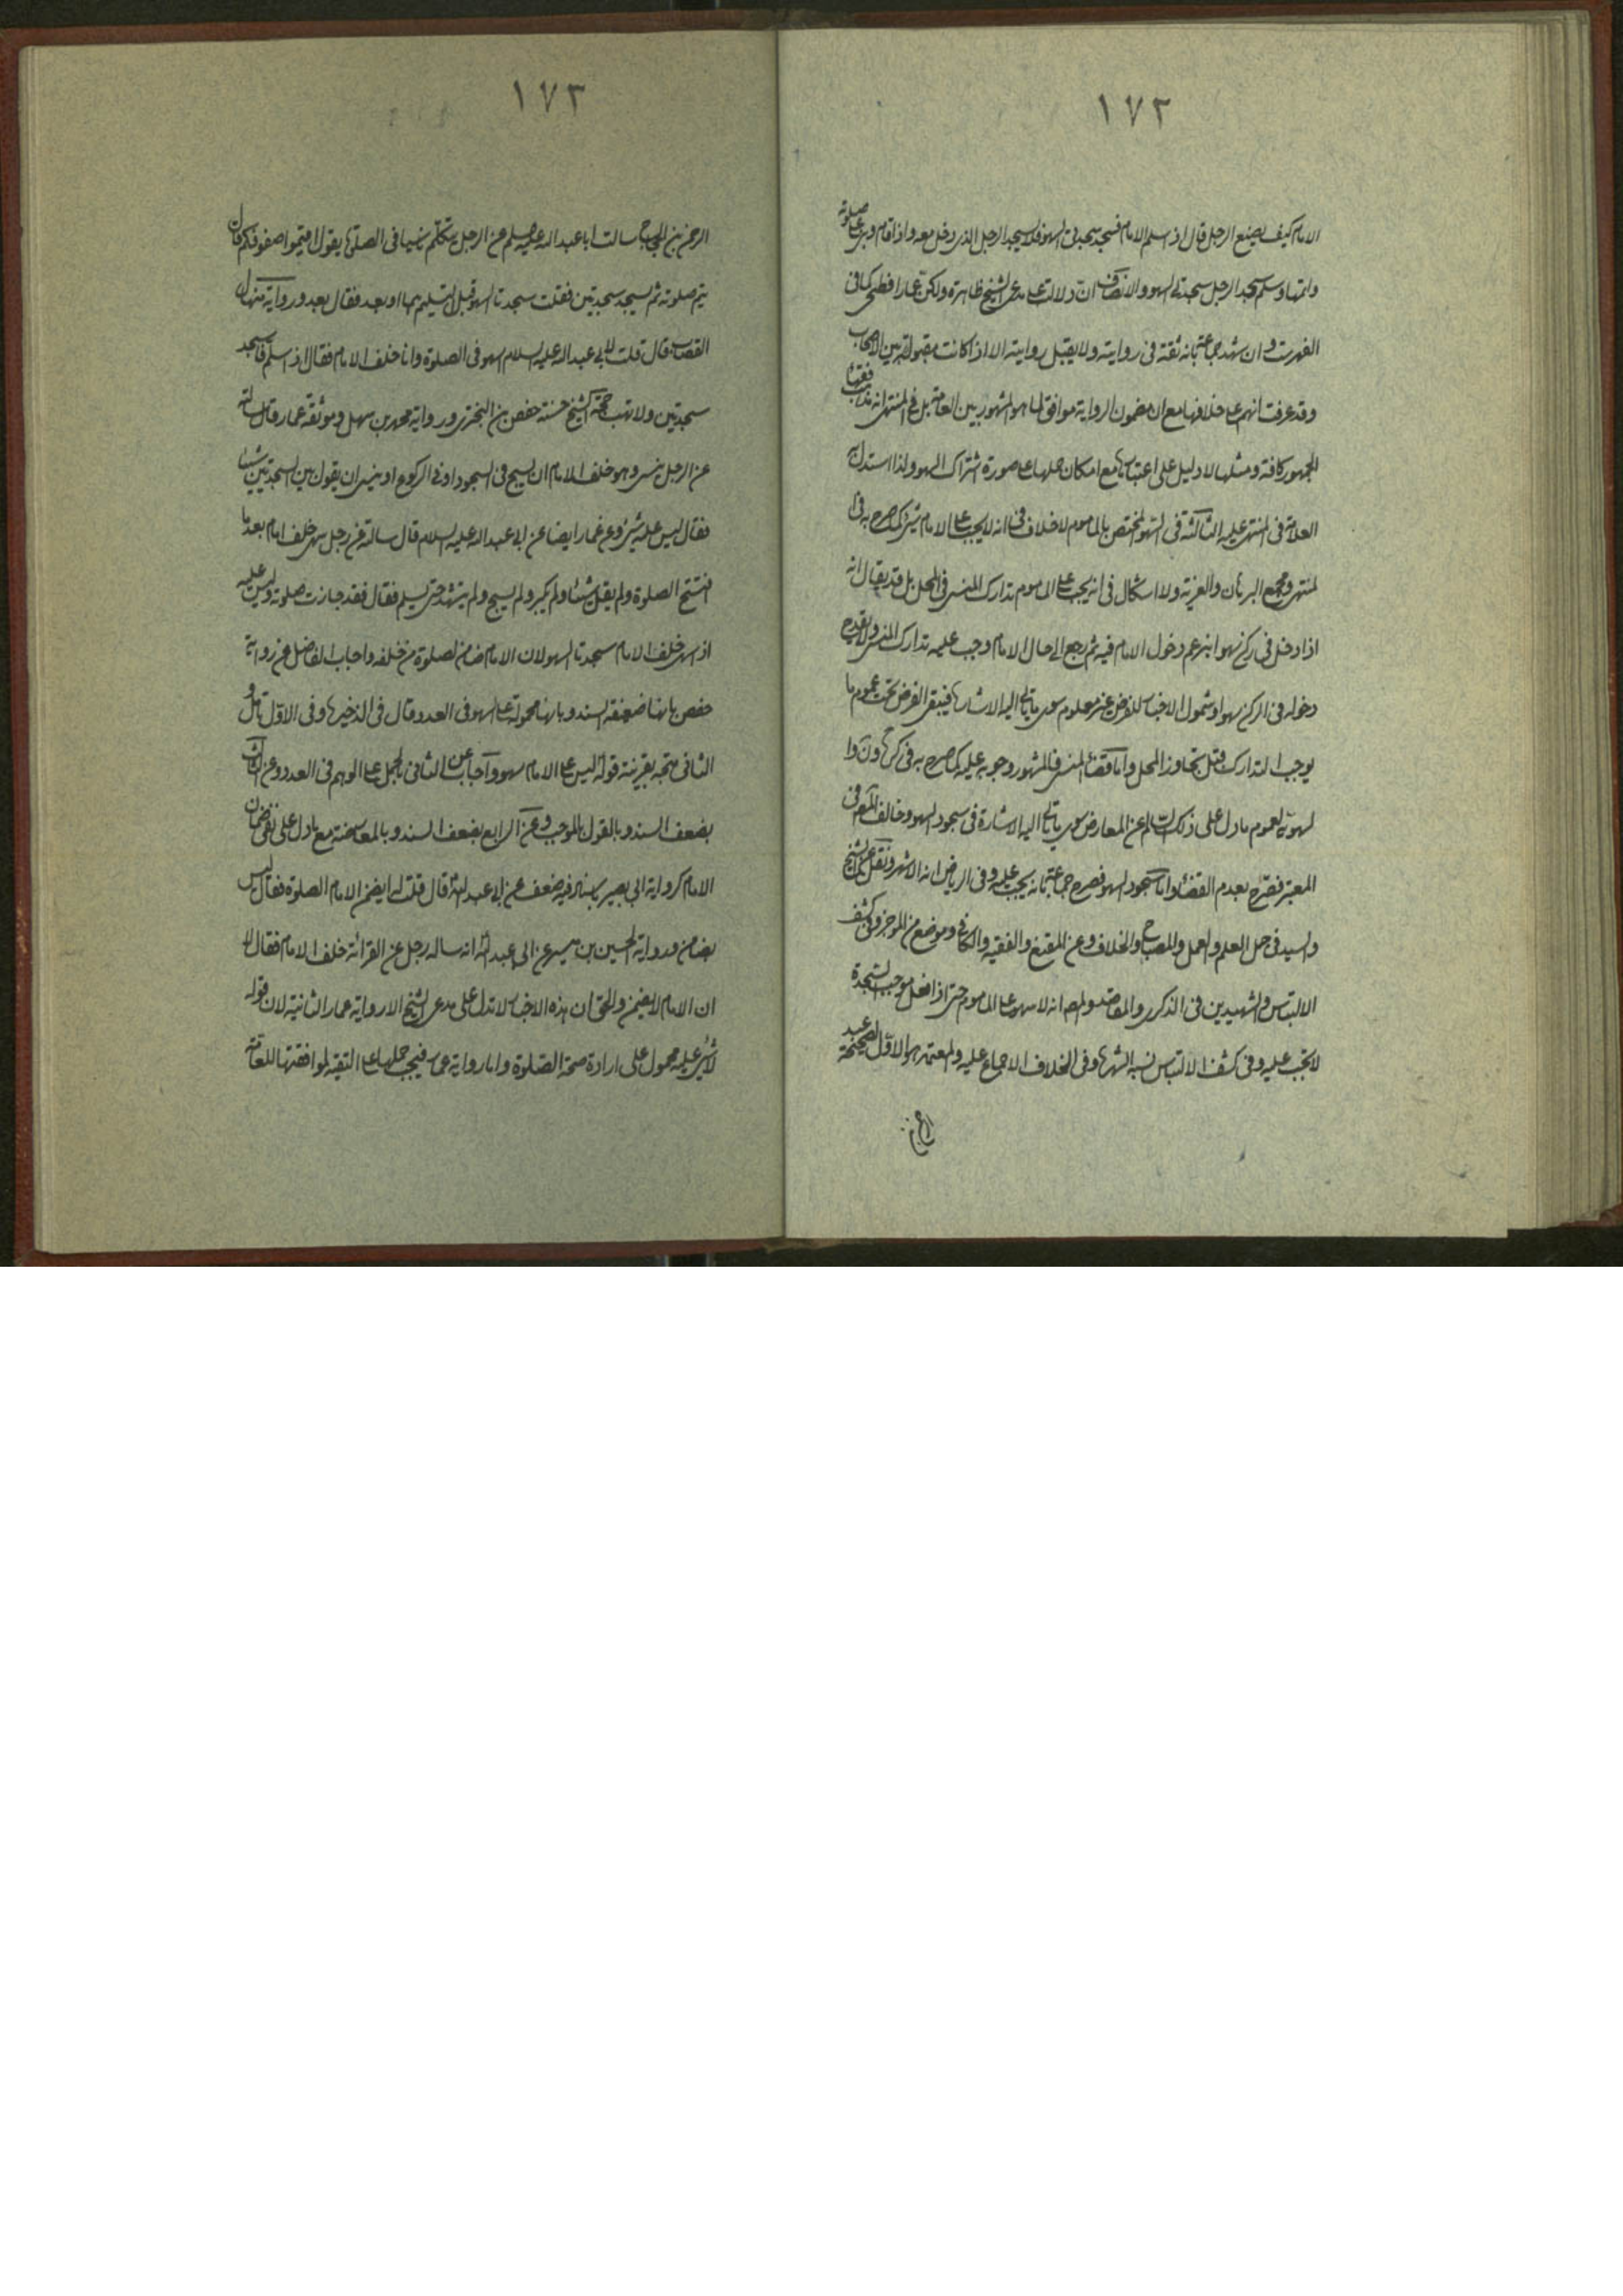 ١٧٢
الامام كيف يصنع الرجل قال اذا سلم الامام فسجد سجدتى السهو فلا يسجد الرجل الذى دخل معه واذا قام وبنى على صلوته
واتمها وسلم سجد الرجل سجدتى السهو والانصاف ان دلالتها على مدعى الشيخ ظاهرة ولكن عمارا فطحى كما فى
الفهرست وان شهد جماعة بانه ثقة فى روايته ولا يقبل روايته الا اذا كانت مقبولة بين الاصحاب
وقد عرفت انهم على خلافها مع ان مضمون الرواية موافق لما هو المشهور بين العامة بل فى المنتهى انه مذهب فقهاء
الجمهور كافة ومثلها لا دليل على اعتبارها مع امكان حملها على صورة اشتراك السهو ولذا استدل به
العلامة فى المنتهى عليه الثالثة فى السهو المختص بالماموم لا خلاف فى انه لا يجب على الامام شىء كما صرح به فى
لمنتهى ومجمع البرهان والغرية ولا اشكال فى انه يجب على الماموم تدارك المنسى فى المحل بل قد يقال انه
اذا دخل فى ركن سهوا بزعم دخول الامام فيه ثم رجع الى حال الامام وجب عليه تدارك المنسى ولا يقدح
دخوله فى الركن سهوا وشمول الاخبار للفرض غير معلوم سوى ما ياتى اليه الاشارة فيبقى الفرض تحت عموم ما
يوجب التدارك قبل تجاوز المحل واما قضاء المنسى فالمشهور وجوبه عليه كما صرح به فى
لسهوية لعموم ما دل على ذلك السالم عن المعارض سوى ما ياتى اليه الاشارة فى سجود السهو وخالف المصنف فى
المعتبر فصرح بعدم القضاء واما سجود السهو فصرح جماعة بانه يجب عليه وفى الرياض انه الاشهر ونقل عن الشيخ
والسيد فى جمل العلم والعمل والمصباح والخلاف وعن المقنع والفقيه والكافى وموضع من الموجز وفى كشف
الالتباس والشهيدين فى الذكرى والمقاصد انه لا سهو على الماموم حتى اذا فعل موجب السجدة
لا يجب عليه وفى كشف الالتباس نسبه الشهرة وفى الخلاف الاجماع عليه والمعتمد هو الاول لصحيحة عبد
الرحمن
١٧٣
الرحمن بن الحجاج سالت ابا عبد الله عليه السلم عن الرجل يتكلم ناسيا فى الصلوة يقول اقيموا صفوفكم قال
يتم صلوته ثم يسجد سجدتين فقلت سجدتا السهو قبل التسليم هما او بعد فقال بعد ورواية منهال
القصاب قال قلت لابى عبد الله عليه السلام اسهو فى الصلوة وانا خلف الامام فقال اذا سلم فاسجد
سجدتين ولا تهب حجة الشيخ حسنة حفص بن البخترى ورواية محمد بن سهل وموثقة عمار قال سالته
عن الرجل ينسى وهو خلف الامام ان يسبح فى السجود او فى الركوع او ينسى ان يقول بين السجدتين شيئا
فقال ليس عليه شىء وعن عمار ايضا عن ابى عبد الله عليه السلام قال سالته عن رجل سهى خلف امام بعد ما
افتتح الصلوة ولم يقل شيئا ولم يكبر ولم يسبح ولم يتشهد حتى يسلم فقال فقد جازت صلوته وليس عليه
اذا سهى خلف الامام سجدتا السهو لان الامام ضامن لصلوة من خلفه واجاب الفاضل عن رواية
حفص بانها ضعيفة السند وبانها محمولة على السهو فى العدد وقال فى الذخيرة وفى الاول تامل و
الثانى متجه بقرينة قوله ليس على الامام سهو واجاب عن الثانى بالحمل على الوهم فى العدد وعن الثالث
بضعف السند وبالقول بالموجب وعن الرابع بضعف السند وبالمعارضة مع ما دل على نفى ضمان
الامام كرواية ابى بصير باسناد فيه ضعف عن ابى عبد الله قال قلت له ايضمن الامام الصلوة فقال ليس
بضامن ورواية الحسين بن بشير عن ابى عبد الله انه ساله رجل عن القرائة خلف الامام فقال لا
ان الامام لا يضمن والحق ان هذه الاخبار لا تدل على مدعى الشيخ الا رواية عمار الثانية لان قوله
لا شىء عليه محمول على ارادة صحة الصلوة واما رواية عمار فيجب حملها على التقية لموافقتها للعامة